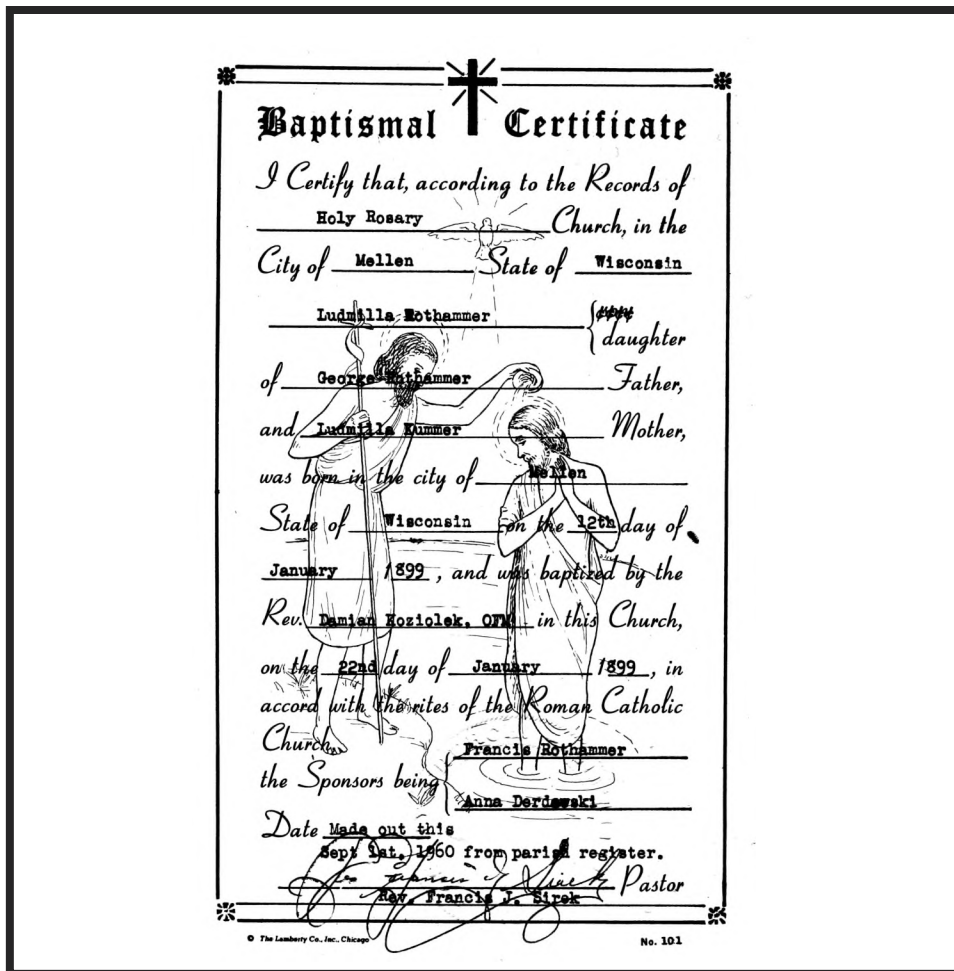 Baptismal Certificate
I Certify that, according to the Records of
Holy Rosary Church, in the
City of Mellen State of Wisconsin
Ludmilla Rothammer
daughter
of George Rothammer Father,
and Ludmilla Kummer Mother,
was born in the city of Mellen
State of Wisconsin on the 12th day of
January 1899, and was baptized by the
Rev. Damian Koziolek, OFM in this Church,
on the 22nd day of January 1899, in
accord with the rites of the Roman Catholic
Church,
Francis Rothammer
the Sponsors being
Anna Derdowski
Date Made out this
Sept 1st, 1960 from parish register.
Francis J. Sirek Pastor
Rev. Francis J. Sirek
© The Lamberty Co., Inc., Chicago No. 101